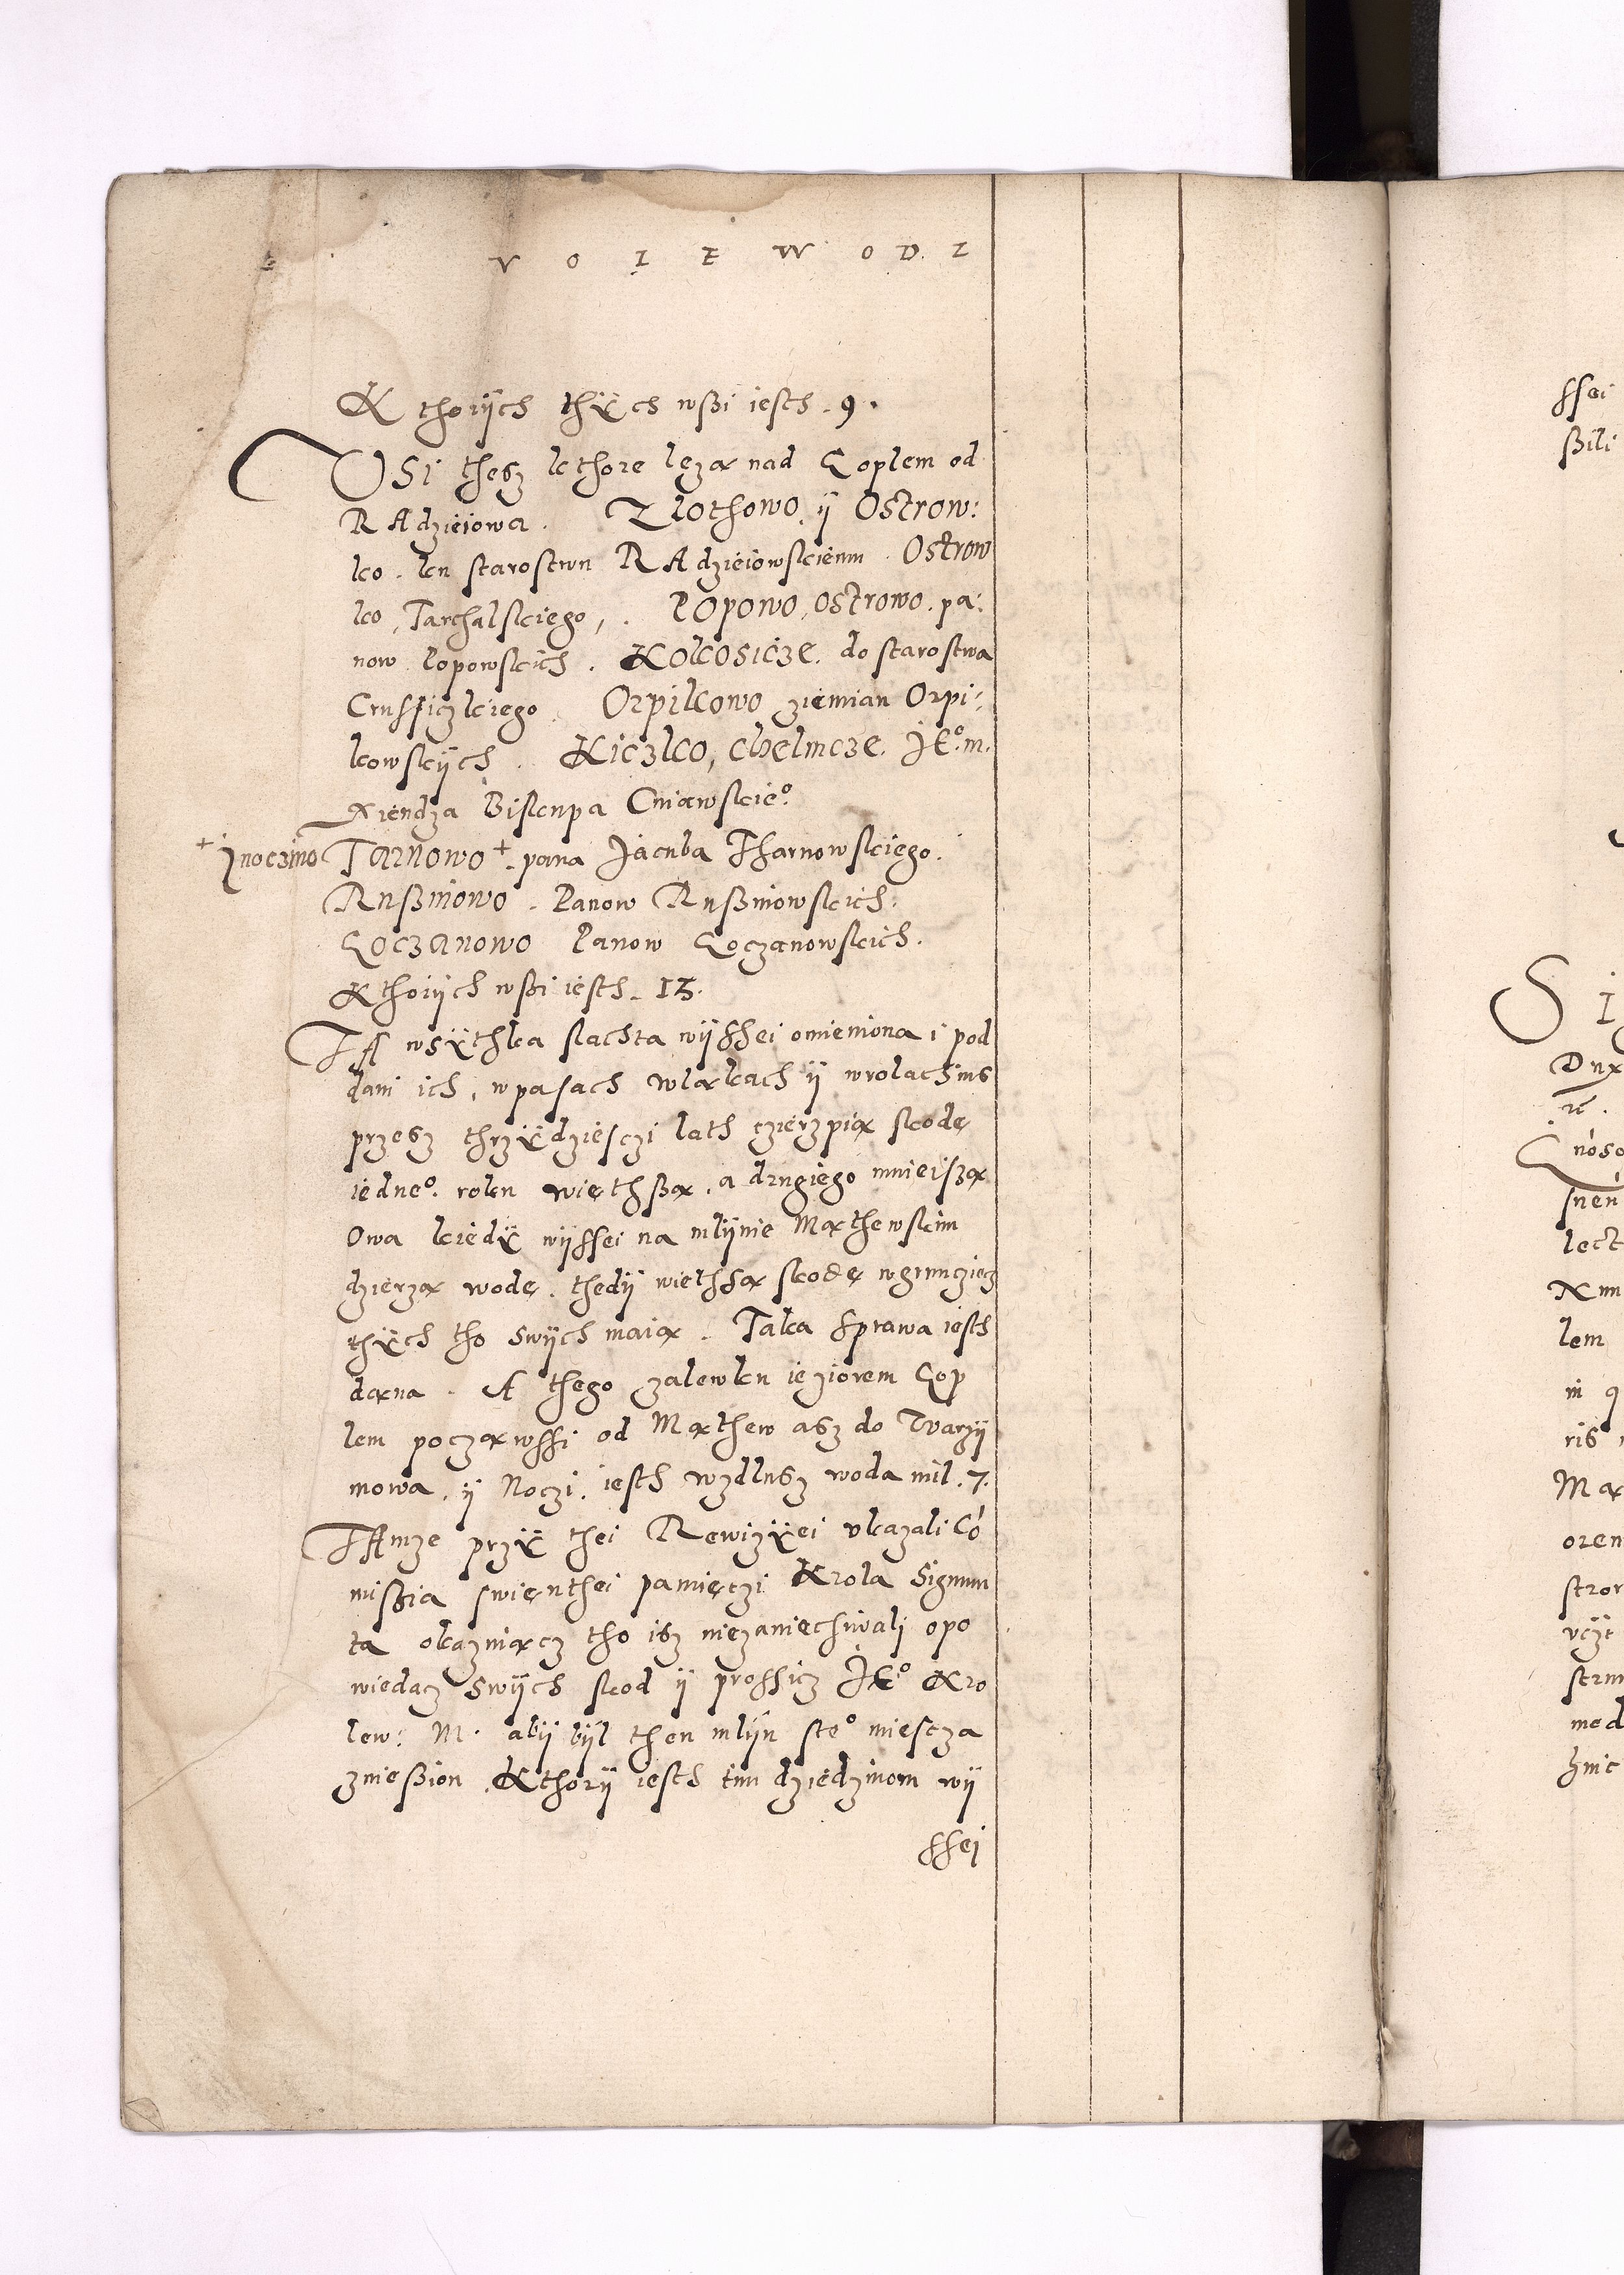 VOIEWODZ
Kthorÿch thÿch wßi iesth . 9 .
Wsi thesz kthore lezą nad Goplem od
RAdzieiowa . Zlothowo ÿ Ostrow:
ko . ku starostwu RAdzieiowskiemu . Ostrow
ko , Tarchalskiego , . Lopowo , Ostrowo . pa:
now lopowskich . Kolcosicze . do starostwa
Crussiczkiego . Orpikowo ziemian Orpi:
kowskÿch . Kiczko , Chelmcze . JE° . m .
xiendza Biskupa Cuiawskie°
+ Jnoczino
Tarnowo + . pana Jacuba Tharnowskiego .
Rußinowo . Panow Rußinowskich .
Goczanowo Panow Goczanowskich .
Kthorÿch wßi iesth . 13 .
TA wsÿthka slachta wÿssei omieniona i pod
dani ich , w pasach w ląkach ÿ w rolach ius
przesz thrzÿdziesczi lath czierzpią skodę
iedne° . roku więthßą , a drugiego mnieiszą
Owa kiedÿ wÿssei na mlÿnie Mąthewskim
dzierzą wodę . thedÿ wiethssą skodę w grunczięcz
thÿch tho swÿch maią . Taka sprawa iesth
dana . A thego zalewku ieziorem Gop
lem począwssi od Mąthew asz do Tvarzÿ
mowa , ÿ Noczi . iesth wzdlusz woda mil . 7 .
TAmze przÿ thei Rewizÿei vkazali Có
mißia swienthei pamięczi Krola Sigmun
ta okazuiącz tho isz niezaniechiwali opo
wiedacz swÿch skod ÿ prossicz JE° Kro
lew: M . abÿ bÿl then mlÿn zte° miescza
znießion . Kthorÿ iesth tim dziedzinom wÿ
ssei